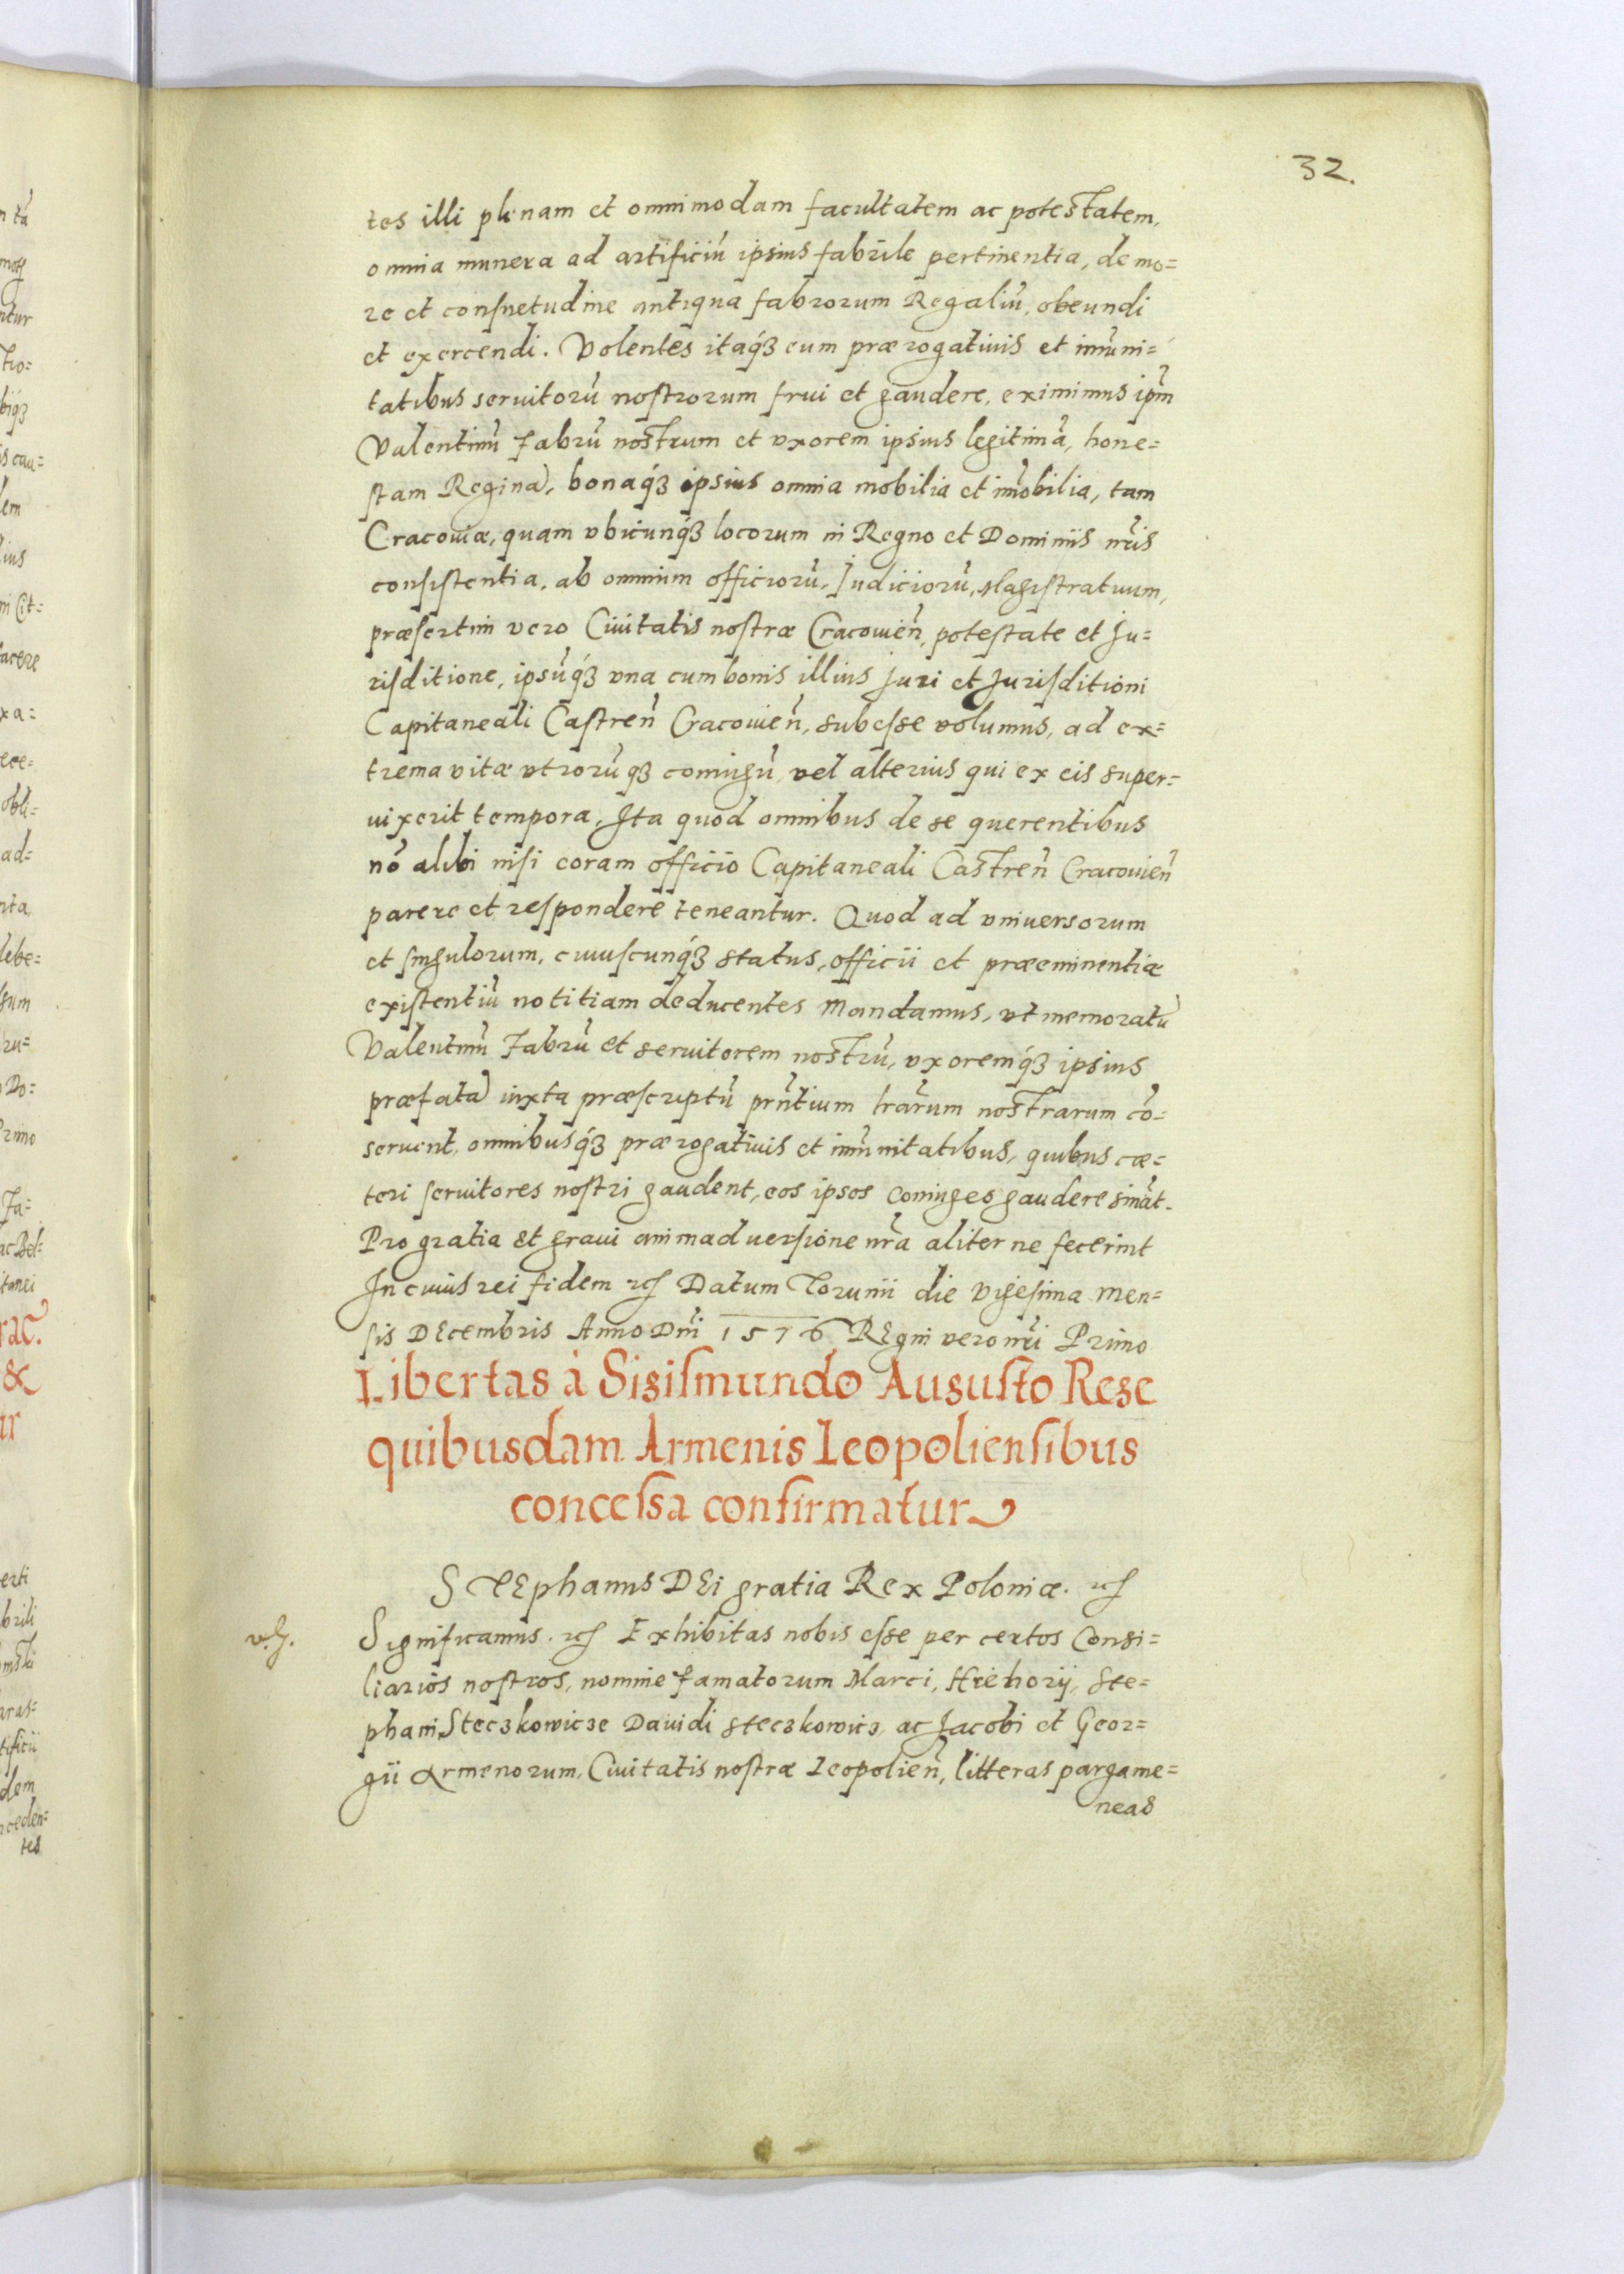 32.
tes illi plenam et omnimodam facultatem ac potestatem,
omnia munera ad artificiū ipsius fabrile pertinentia, de mo=
re et consuetudine antiqua fabrorum Regaliū, obeundi
et exercendi. Volentes itaq́ꝫ eum prærogatiuis et im̄uni=
tatibus seruitorū nostrorum frui et gaudere, eximimus ip̄m
Valentinū Fabrū nostrum et vxorem ipsius legitimā, hone=
stam Reginā, bonaq́ꝫ ipsius omnia mobilia et im̄obilia, tam
Cracouiæ, quam vbicunq́ꝫ locorum in Regno et Dominiis nr̄is
consistentia, ab omnium officiorū, Judiciorū, Magistratuum,
præsertim vero Ciuitatis nostræ Cracouien̄, potestate et Ju=
risditione, ipsūq́ꝫ vna cum bonis illius juri et Jurisditioni
Capitaneali Castren̄ Cracouien̄, subesse volumus, ad ex=
trema vitæ vtrorūqꝫ coniugū, vel alterius qui ex eis super=
uixerit tempora, Ita quod omnibus de se querentibus
nō alibi nisi coram officio Capitaneali Castren̄ Cracouien̄
parere et respondere teneantur. Quod ad vniuersorum
et singulorum, cuiuscunq́ꝫ status, officii et præeminentiæ
existentiū notitiam deducentes Mandamus, vt memoratū
Valentinū Fabrū et seruitorem nostrū, vxoremq́ꝫ ipsius
præfatā iuxta præscriptū prn̄tium lr̄arum nostrarum cō=
seruent, omnibusq́ꝫ prærogatiuis et im̄unitatibus, quibus cæ=
teri seruitores nostri gaudent, eos ipsos coniuges gaudere sināt.
Pro gratia et graui animaduersione nr̄a aliter ne fecerint
In cuius rei fidem ꝛcꝭ Datum Torunii die vigesima men=
sis DEcembris Anno Dn̄i 1576 REgni vero nr̄i Primo
Libertas à Sigismundo Augusto Rege
quibusdam Armenis Leopoliensibus
concessa confirmatur
STEphanus DEi gratia Rex Poloniæ. ꝛcꝭ
Significamus. ꝛcꝭ Exhibitas nobis esse per certos Consi=
liarios nostros, nomine famatorum Marci, Hrehorÿ, Ste=
phani Steczkowicze Dauidi Steczkowicz, ac Jacobi et Geor=
gii Armenorum, Ciuitatis nostræ Leopolien̄, litteras pargame=
neas